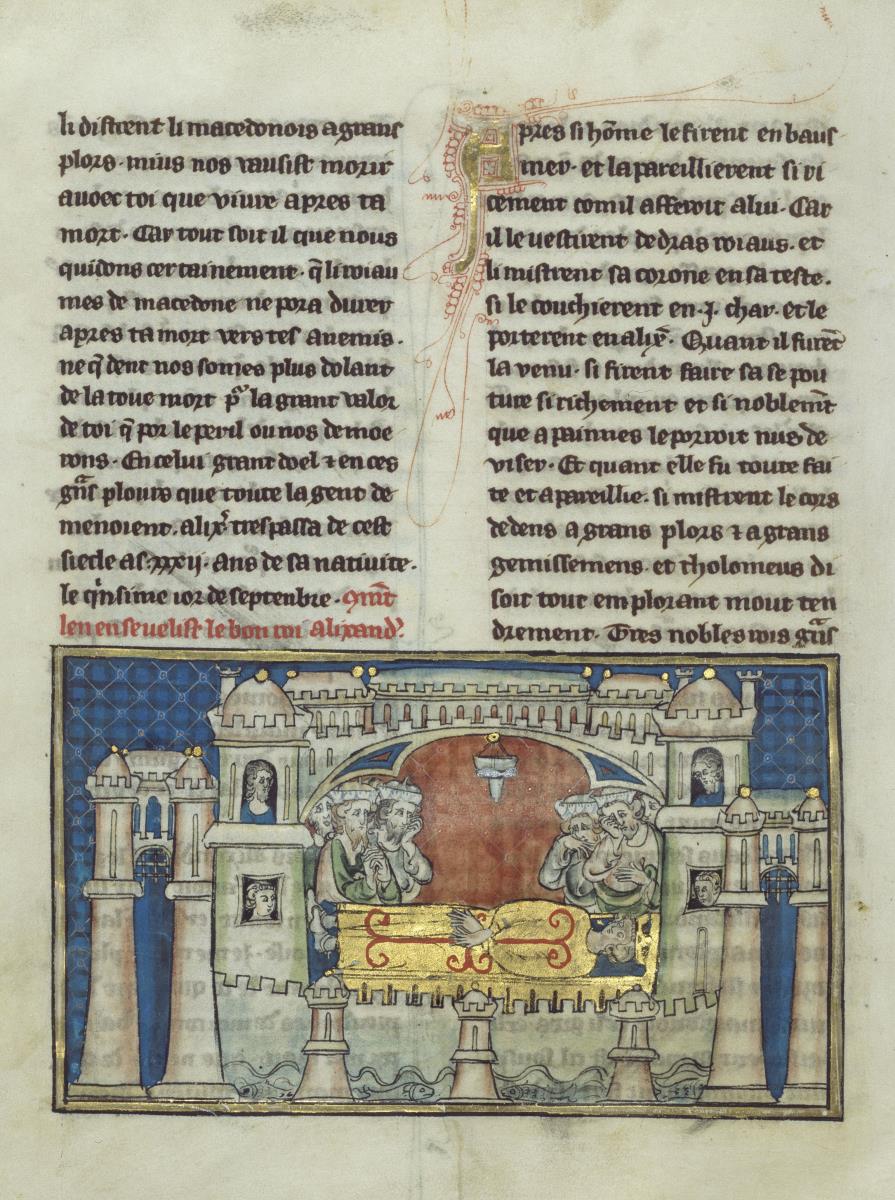 li distrent li macedonois a grans
plors · mius nos vausist morir
avoec toi que vivre apres ta
mort · Car tout soit il que nous
quidons certainement · q̃ li roiau
mes de macedone ne pora durer
apres ta mort vers tes anemis ·
ne q̃ dent nos somes plus dolant
de la toue mort p̱ la grant valor
de toi q̃ por le peril ou nos demoe
rons · En celui grant doel ⁊ en ces
gͣns plours que toute la gent de
menoient · alix̃ trespassa de cest
siecle a · xxxij · ans de sa nativite ·
le qͥnsime ior de septenbre · Qm̃t
len enseuelist le bon roi alixand̾
Apres si home le firent en baus
mer · et lapareillierent si ri
cement com il afferoit a lui · Car
il le vestirent de dras roiaus · et
li mistrent sa corone en sa teste ·
si le couchierent en · j · char · et le
porterent en alix̃ · Quant il furẽt
la venu · si firent faire sa se pou
ture si richement et si noblemẽt
que a painnes le porroit nus de
viser · Et quant elle fu toute fai
te et apareillie · si mistrent le cors
dedens a grans plors ⁊ a grans
gemissemens · et tholomeus di
soit tout em plorant mout ten
drement · Tres nobles rois gͣns